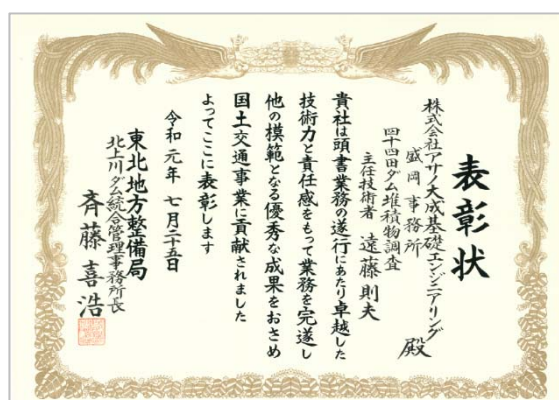 表彰状
株式会社アサノ大成基礎エンジニアリング
盛岡事務所 殿
四十四田ダム堆積物調査
主任技術者 遠藤則夫
貴社は頭書業務の遂行にあたり卓越した
技術力と責任感をもって業務を完遂し
他の模範となる優秀な成果をおさめ
国土交通事業に貢献されました
よってここに表彰します
令和元年七月二十五日
東北地方整備局
北上川ダム統合管理事務所長
斉藤喜浩